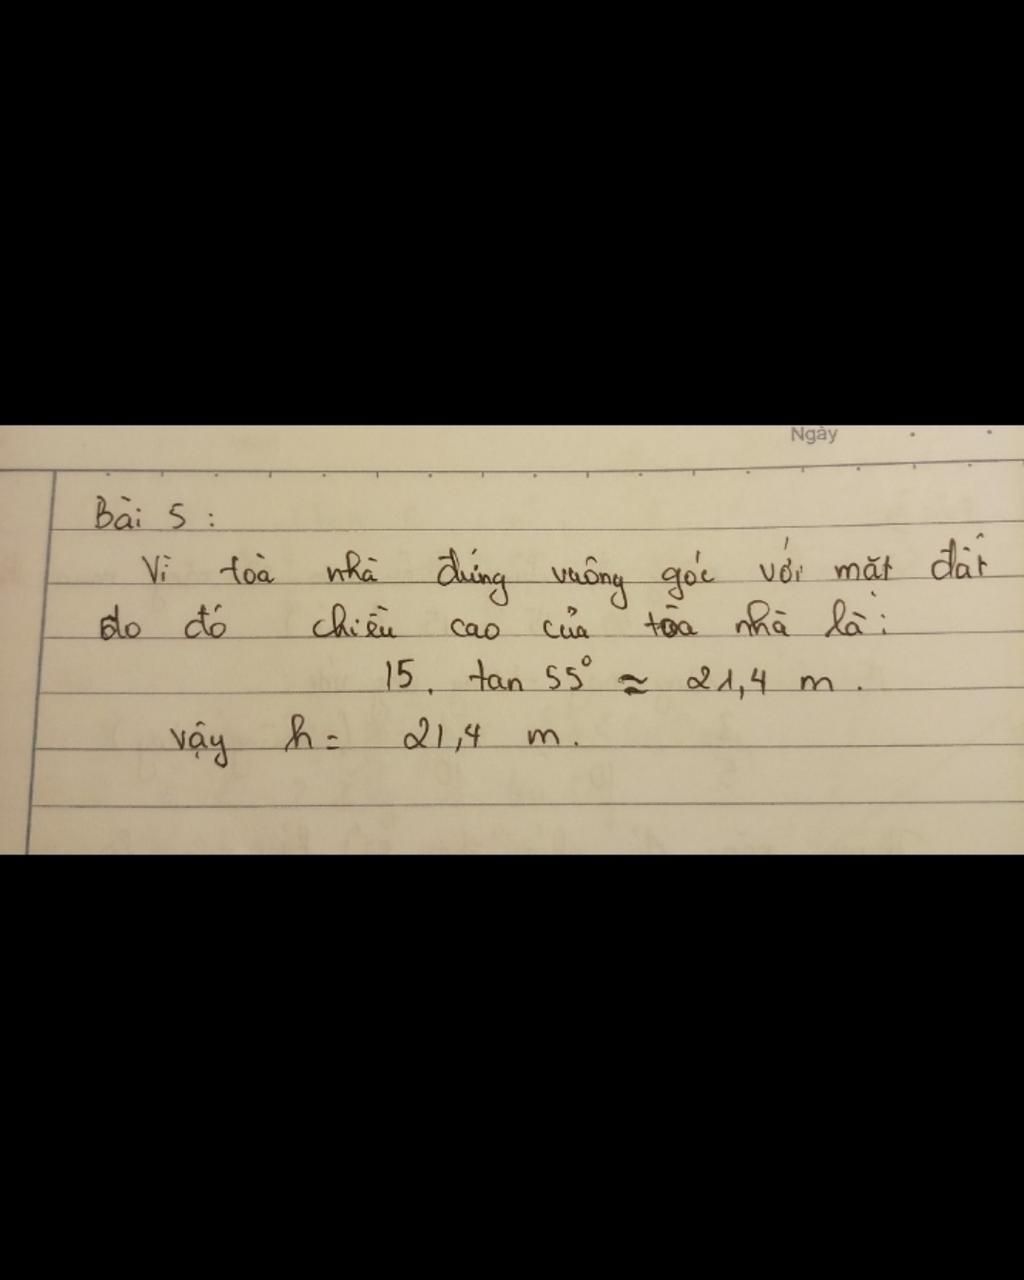 Ngày
Bài 5 :
Vì toà nhà đứng vuông góc với mặt đất
do đó chiều cao của tòa nhà là :
15 . tan 55° ≈ 21,4 m .
vậy h = 21,4 m .